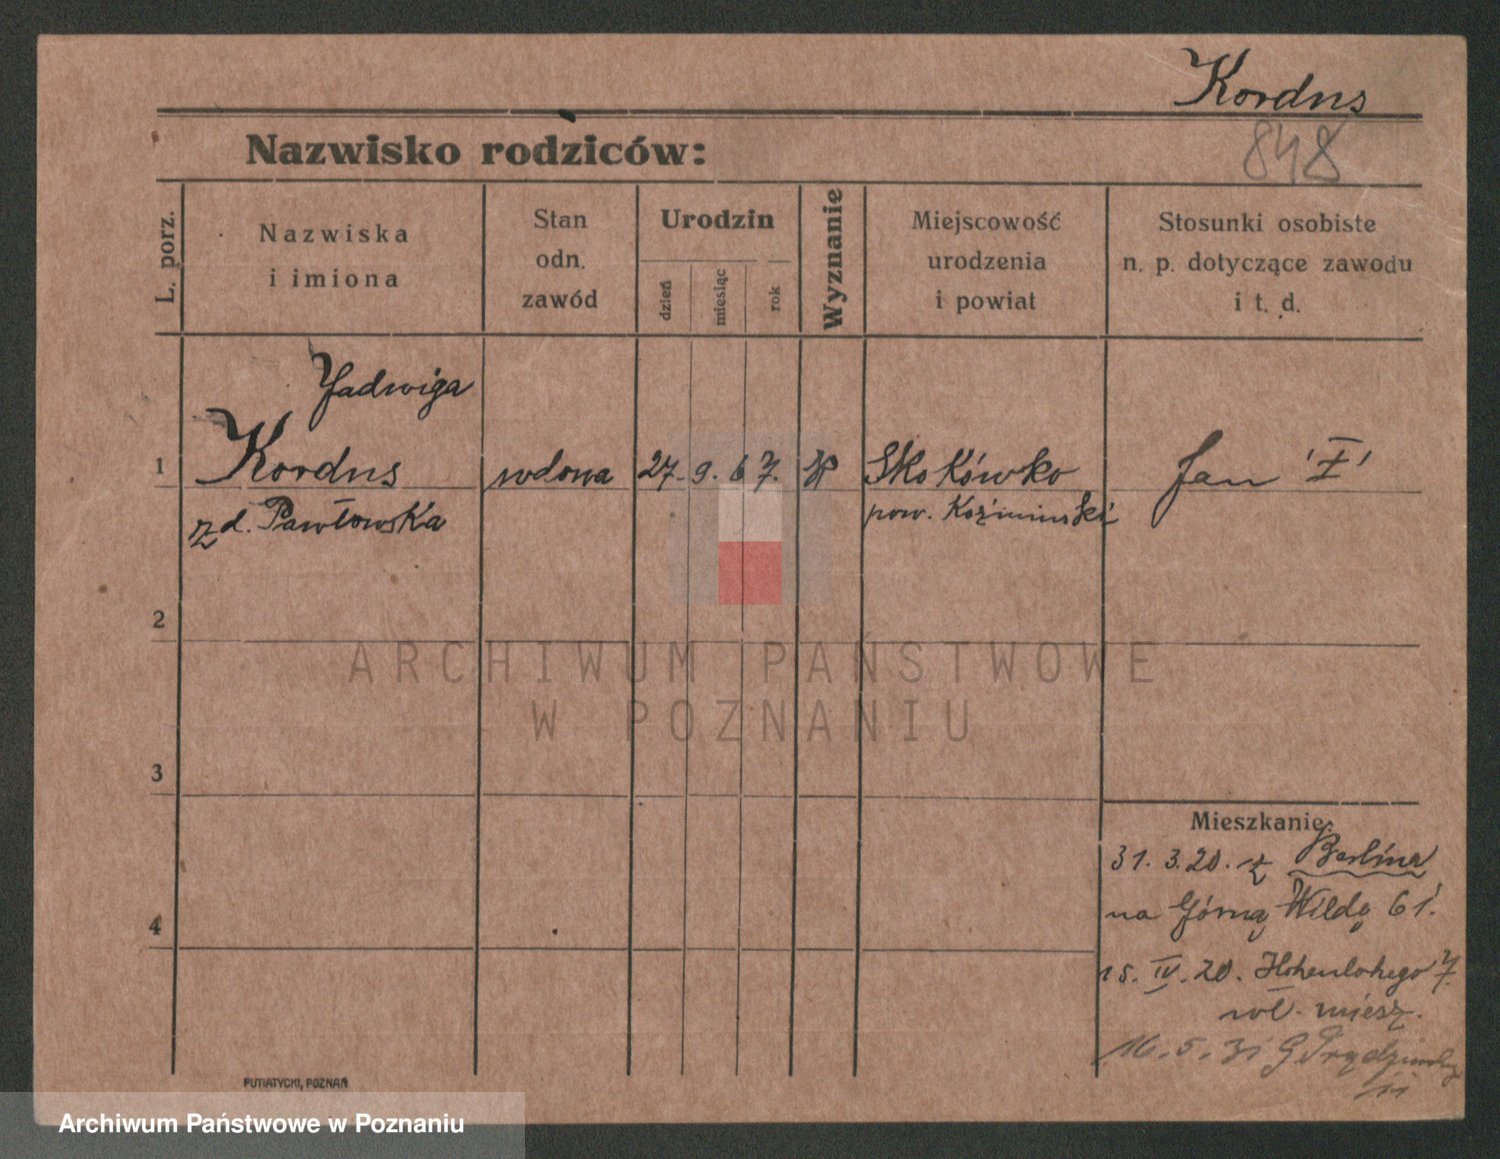 Kordus
848
Nazwisko rodziców:
L. porz.
Nazwiska
i imiona
Stan
odn.
zawód
Urodzin
dzień
miesiąc
rok
Wyznanie
Miejscowość
urodzenia
i powiat
Stosunki osobiste
n. p. dotyczące zawodu
i t. d.
Jadwiga
1 Kordus wdowa 27. 9. 67. Skokówko Jan
zd. Pawłowska pow. Koźmiński
2
ARCHIWUM PAŃSTWOWE
W POZNANIU
3
Mieszkanie:
31. 3. 20. z Berlina
na Górną Wildę 61.
4
15. IV. 20. Hohenlohego 7.
wł. miesz.
16. 5. 31 G Prądzyńskiego
PUTIATYCKI, POZNAŃ
Archiwum Państwowe w Poznaniu